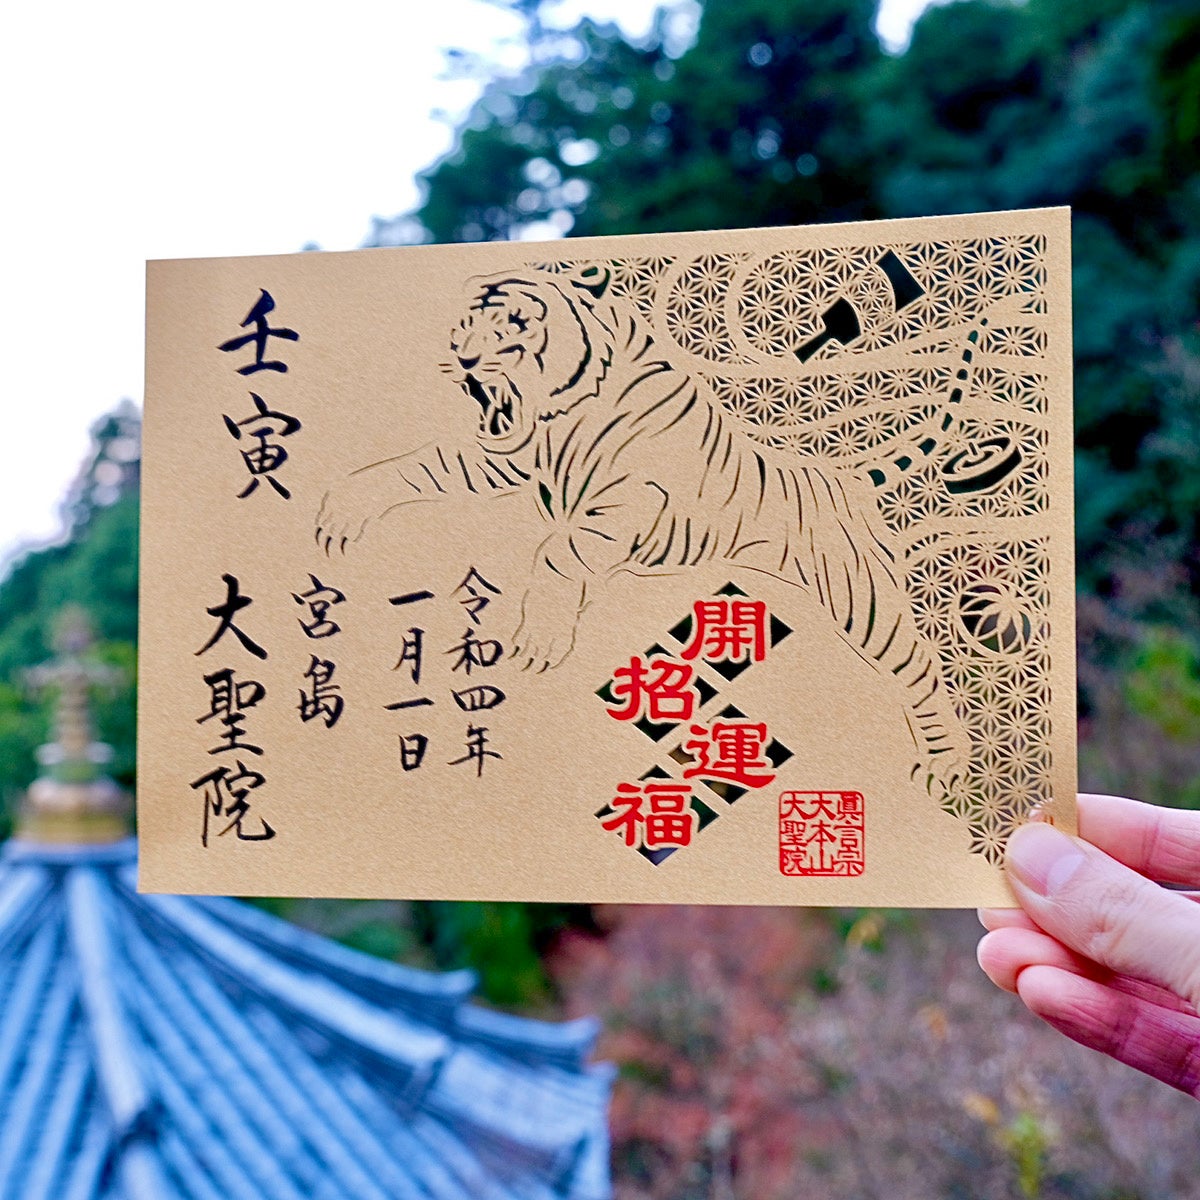 壬寅
令和四年
一月一日
宮島
大聖院
開運
招福
眞言宗
大本山
大聖院